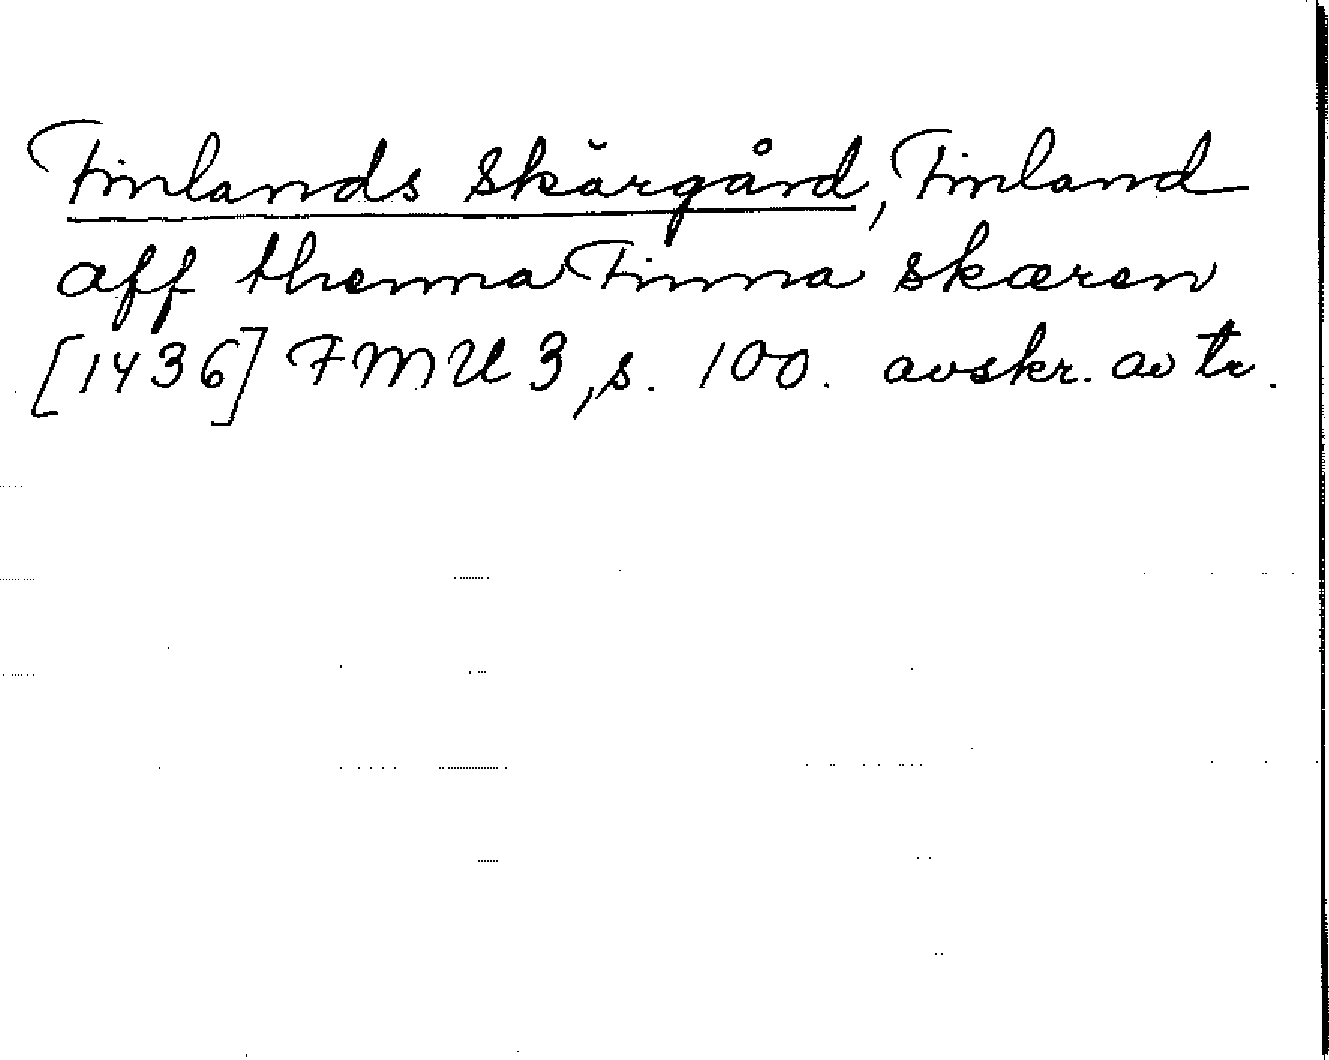 Finlands skärgård, Finland
aff thenna Finna skæren
[1436] FMU 3, s. 100. avskr. av tr.